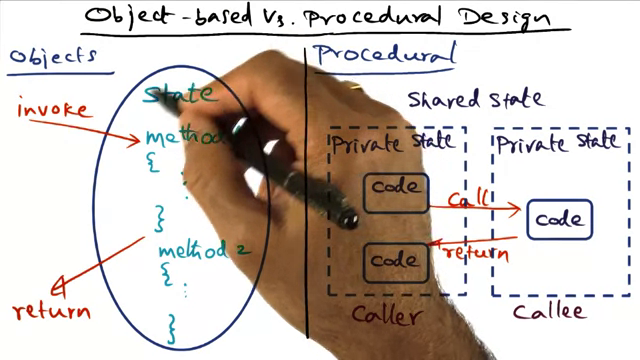 Object-based Vs. Procedural Design
Objects
invoke
State
method
{
:
}
method 2
{
:
}
return
Procedural
Shared State
Private State
Private State
code
call
code
return
code
Caller
Callee